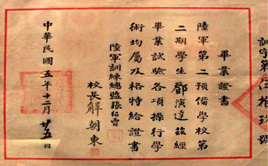 畢業證書
陸軍第二預備學校第
二期學生鄧演達茲經
畢業試驗各項操行學
術均屬及格特給證書
陸軍訓練總監張紹曾
校長解朝東
中華民國五年十二月廿五日